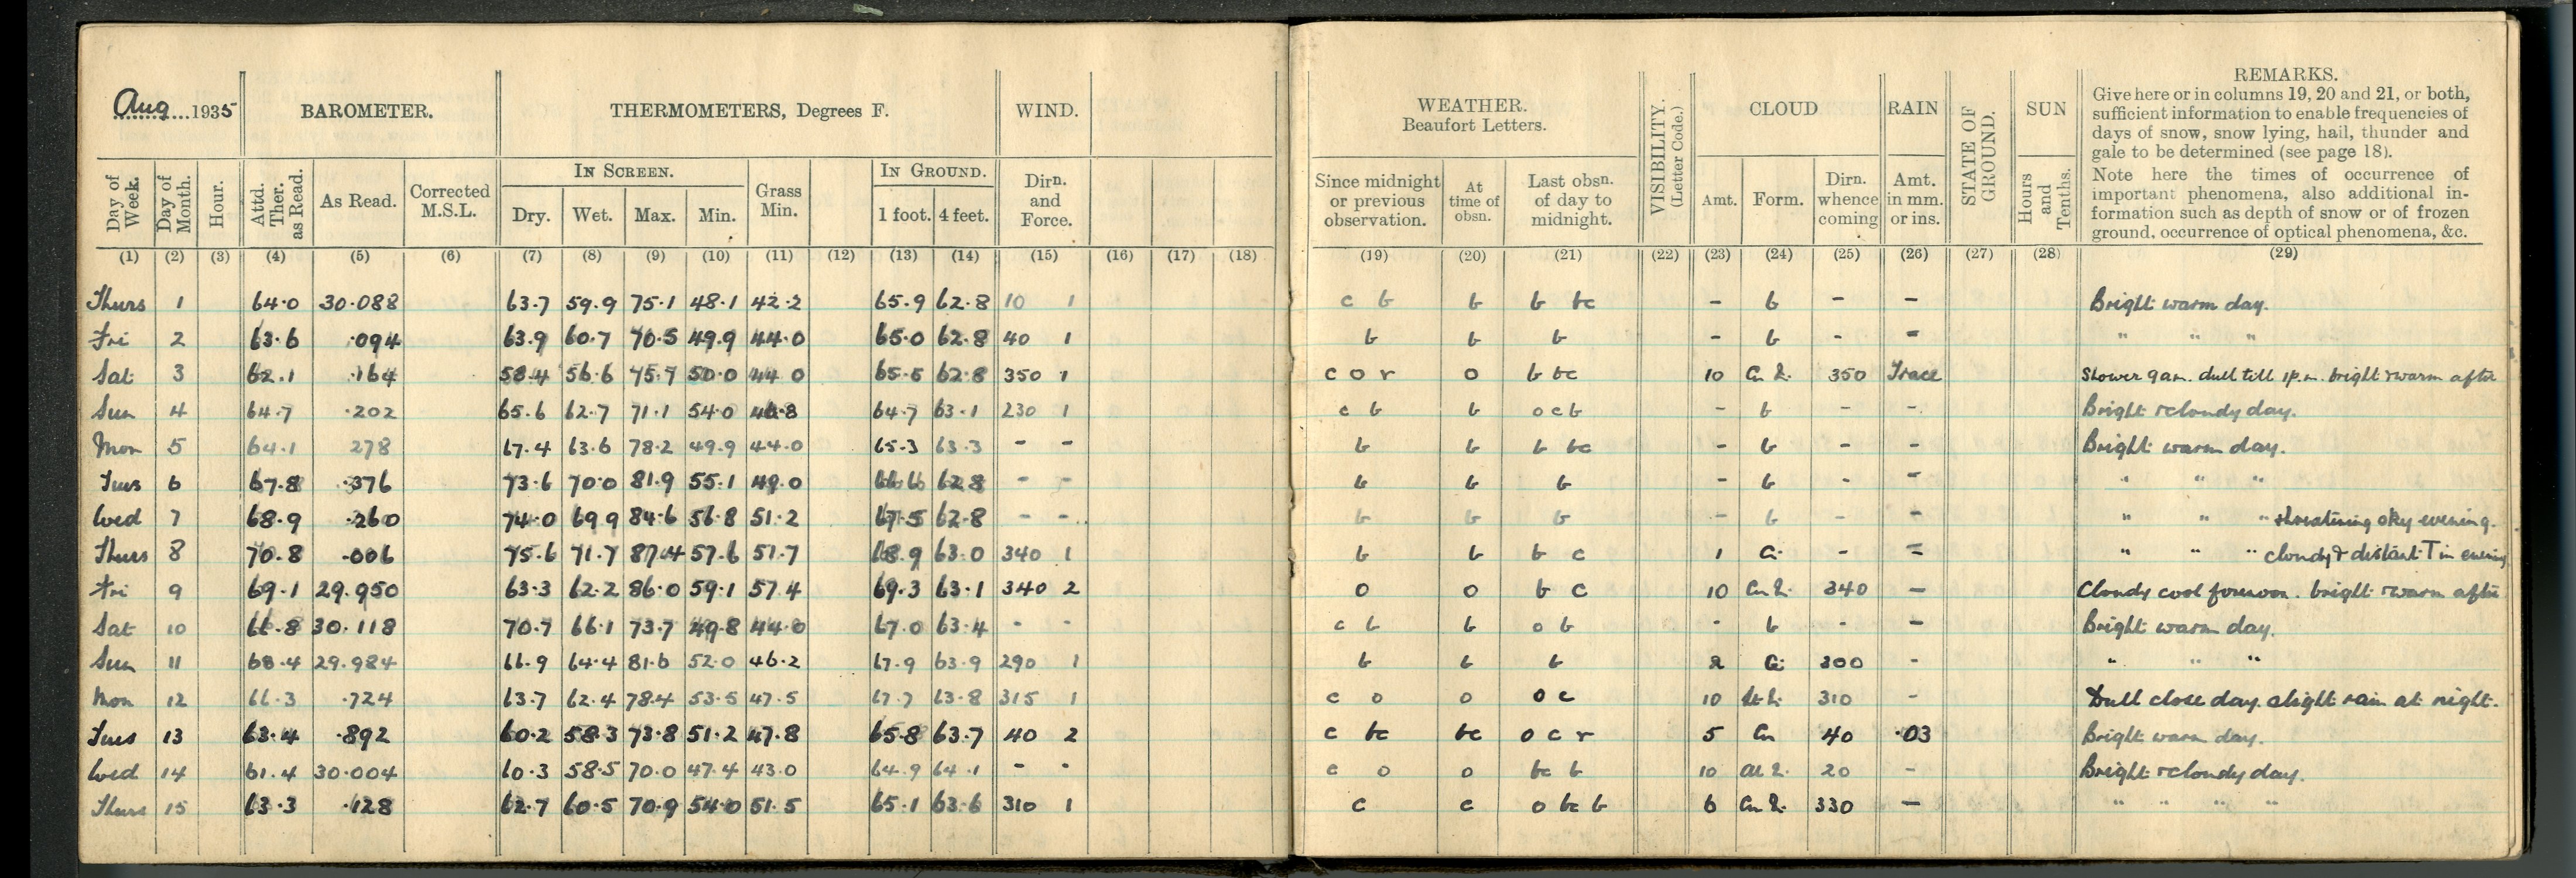 Aug 1935 BAROMETER. THERMOMETERS, Degrees F. WIND. WEATHER. Beaufort Letters. VISIBILITY. (Letter Code.) CLOUD RAIN STATE OF GROUND. SUN REMARKS.
Give here or in columns 19, 20 and 21, or both,
sufficient information to enable frequencies of
days of snow, snow lying, hail, thunder and
gale to be determined (see page 18).
Note here the times of occurrence of
important phenomena, also additional in-
formation such as depth of snow or of frozen
ground, occurrence of optical phenomena, &c.
IN SCREEN. IN GROUND.
Day of Week. Day of Month. Hour. Attd. Ther. as Read. As Read. Corrected M.S.L. Dry. Wet. Max. Min. Grass Min. 1 foot. 4 feet. Dirn. and Force. Since midnight or previous observation. At time of obsn. Last obsn. of day to midnight. Amt. Form. Dirn. whence coming Amt. in mm. or ins. Hours and Tenths.
(1) (2) (3) (4) (5) (6) (7) (8) (9) (10) (11) (12) (13) (14) (15) (16) (17) (18) (19) (20) (21) (22) (23) (24) (25) (26) (27) (28) (29)
Thurs 1 64.0 30.088 63.7 59.9 75.1 48.1 42.2 65.9 62.8 10 1 c b b b bc - b - - Bright warm day.
Fri 2 63.6 .094 63.9 60.7 70.5 49.9 44.0 65.0 62.8 40 1 b b b - b - - " " "
Sat 3 62.1 .164 58.4 56.6 75.7 50.0 44.0 65.5 62.8 350 1 c o r o b bc 10 350 Trace Shower 9am. dull till 1p.m. bright & warm after
Sun 4 64.7 .202 65.6 62.7 71.1 54.0 64.7 63.1 230 1 c b b o c b - b - - Bright & cloudy day.
Mon 5 64.1 278 67.4 63.6 78.2 49.9 44.0 65.3 63.3 - - b b b bc - b - - Bright warm day.
Tues 6 67.8 .376 73.6 70.0 81.9 55.1 49.0 66.6 62.8 - - b b b - b - - " " "
Wed 7 68.9 .260 74.0 69.9 84.6 56.8 51.2 67.5 62.8 - - b b b - b - - " " " threatening sky evening.
Thurs 8 70.8 .006 75.6 71.7 87.4 57.6 51.7 68.9 63.0 340 1 b b b c 1 Ci - - " " " cloudy & distant T in evening
Fri 9 69.1 29.950 63.3 62.2 86.0 59.1 57.4 69.3 63.1 340 2 o o b c 10 340 - Cloudy cool forenoon. bright & warm after
Sat 10 66.8 30.118 70.7 66.1 73.7 49.8 44.0 67.0 63.4 - - c b b o b - b - - Bright warm day.
Sun 11 68.4 29.984 66.9 64.4 81.6 52.0 46.2 67.9 63.9 290 1 b b b 2 Ci 300 - " " "
Mon 12 66.3 .724 63.7 62.4 78.4 53.5 47.5 67.7 63.8 315 1 c o o o c 10 310 - Dull close day. slight rain at night.
Tues 13 63.4 .892 60.2 58.3 73.8 51.2 47.8 65.8 63.7 40 2 c bc bc o c r 5 Cu 40 .03 Bright warm day.
Wed 14 61.4 30.004 60.3 58.5 70.0 47.4 43.0 64.9 64.1 - - c o o bc b 10 20 - Bright & cloudy day.
Thurs 15 63.3 .128 62.7 60.5 70.9 54.0 51.5 65.1 63.6 310 1 c c o bc b 6 330 - " " " "